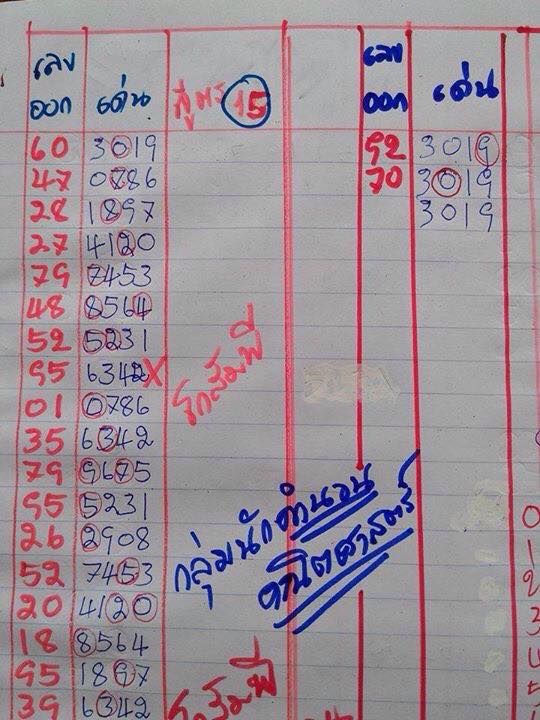 เลข ออก เด่น สูตร 15
60 3019
47 0786
28 1897
27 4120
79 7453
48 8564
52 5231
95 6342 X
01 0786
35 6342
79 9675
95 5231
26 2908
52 7453
20 4120
18 8564
95 1897
39 6342
โกสัมพี
กลุ่มนักคำนวน
คณิตศาสตร์
โกสัมพี
เลข ออก เด่น
92 3019
70 3019
3019
0
1
2
3